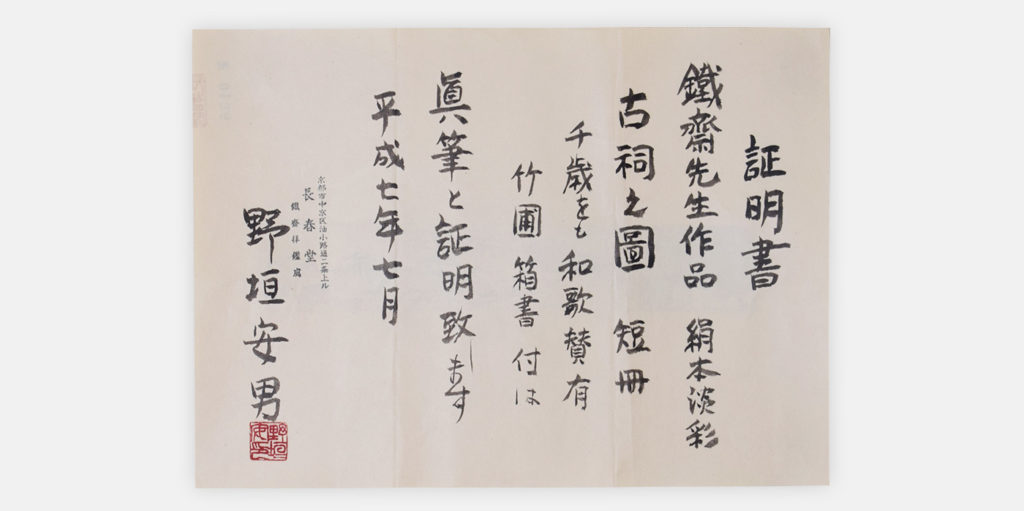 証明書
鐵齋先生作品 絹本淡彩
古祠之圖 短冊
千歳をも和歌賛有
竹圃箱書付は
眞筆と証明致します
平成七年七月
京都市中京区油小路通二条上ル
長春堂
鐵齋拝鑑席
野垣安男